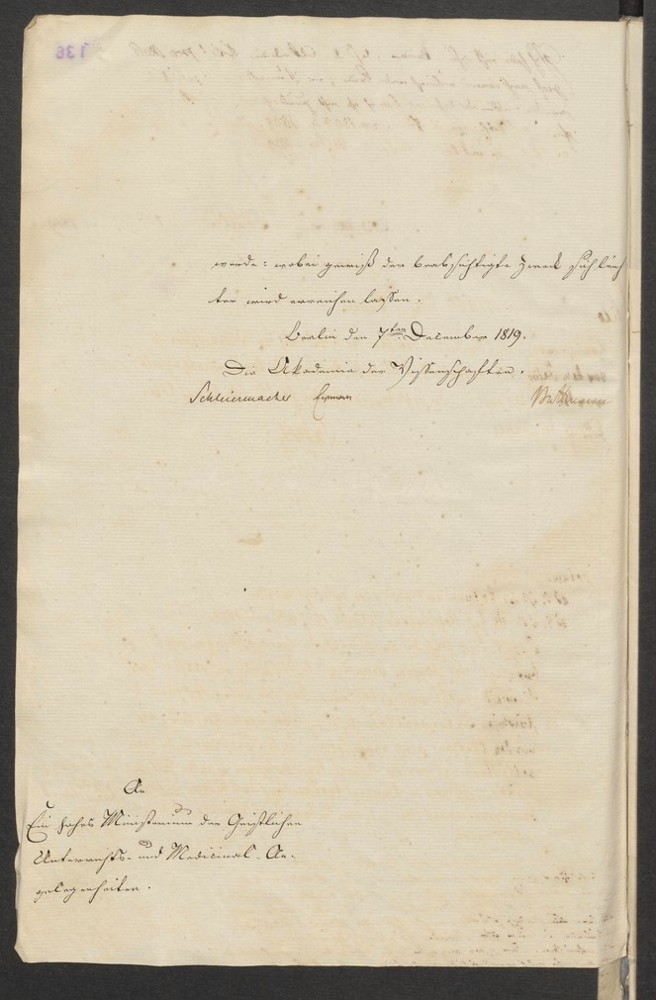 werde: wobei gewiß der beabsichtigte Zweck sich leich
ter wird erreichen lassen.
Berlin den 7ten December 1819.
Die Akademie der Wissenschaften.
Schleiermacher Erman Buttmann
An
Ein hohes Ministerium der Geistlichen
Unterrichts- und Medicinal-An-
gelegenheiten.